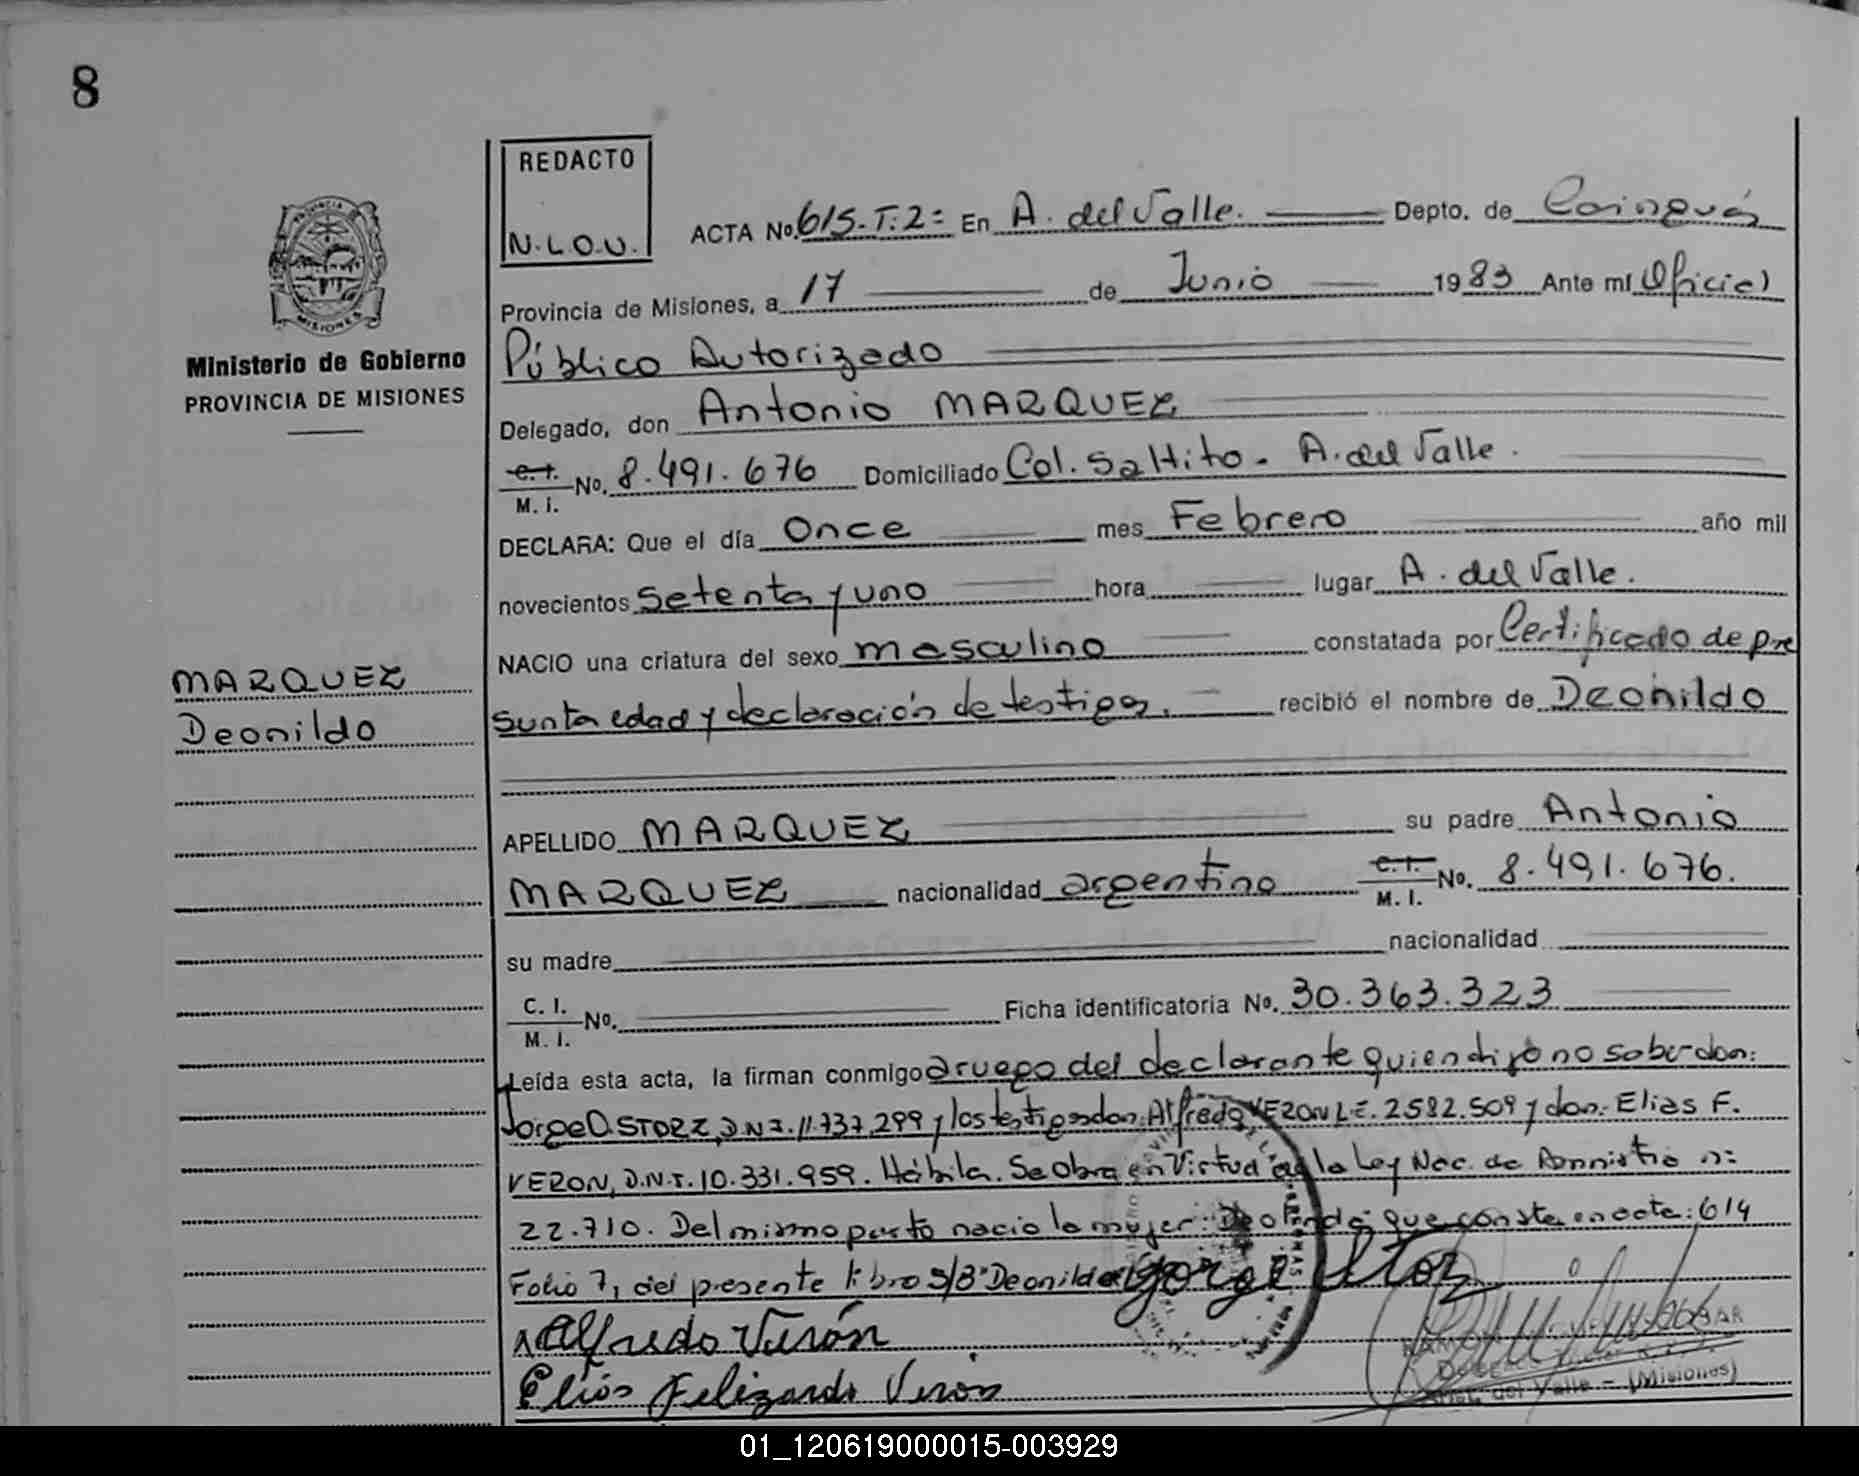 8
REDACTO
N.L.O.U.
PROVINCIA
MISIONES
Ministerio de Gobierno
PROVINCIA DE MISIONES
MARQUEZ
Deonildo
ACTA No. 615-T:2= En A. del Valle. Depto. de Cainguás
Provincia de Misiones, a 17 de Junio 1983 Ante mí Oficial
Público Autorizado
Delegado, don Antonio MARQUEZ
C.I. M.I. No. 8.491.676 Domiciliado Col. Saltito - A. del Valle.
DECLARA: Que el día Once mes Febrero año mil
novecientos setenta y uno hora lugar A. del Valle.
NACIO una criatura del sexo masculino constatada por Certificado de pre
sunta edad y declaración de testigos. recibió el nombre de Deonildo
APELLIDO MARQUEZ su padre Antonio
MARQUEZ nacionalidad argentino C.I. M.I. No. 8.491.676.
su madre nacionalidad
C.I. M.I. No. Ficha identificatoria No. 30.363.323
Leída esta acta, la firman conmigo a ruego del declarante quien dijo no saber don:
Jorge O. STORZ, D.N.I. 11.737.299 y los testigos don: Alfredo VERON L.E. 2582.509 y don: Elias F.
VERON, D.N.I. 10.331.959. Hábila. Se Obra en Virtud de la Ley Nac. de Amnistia n:
22.710. Del mismo parto nacio la mujer: que consta en acta: 614
Folio 7, del presente libro S/B "Deonildo" Jorge Storz
Alfredo Verón
Elias Felizardo Veron
del Valle - (Misiones)
01_120619000015-003929